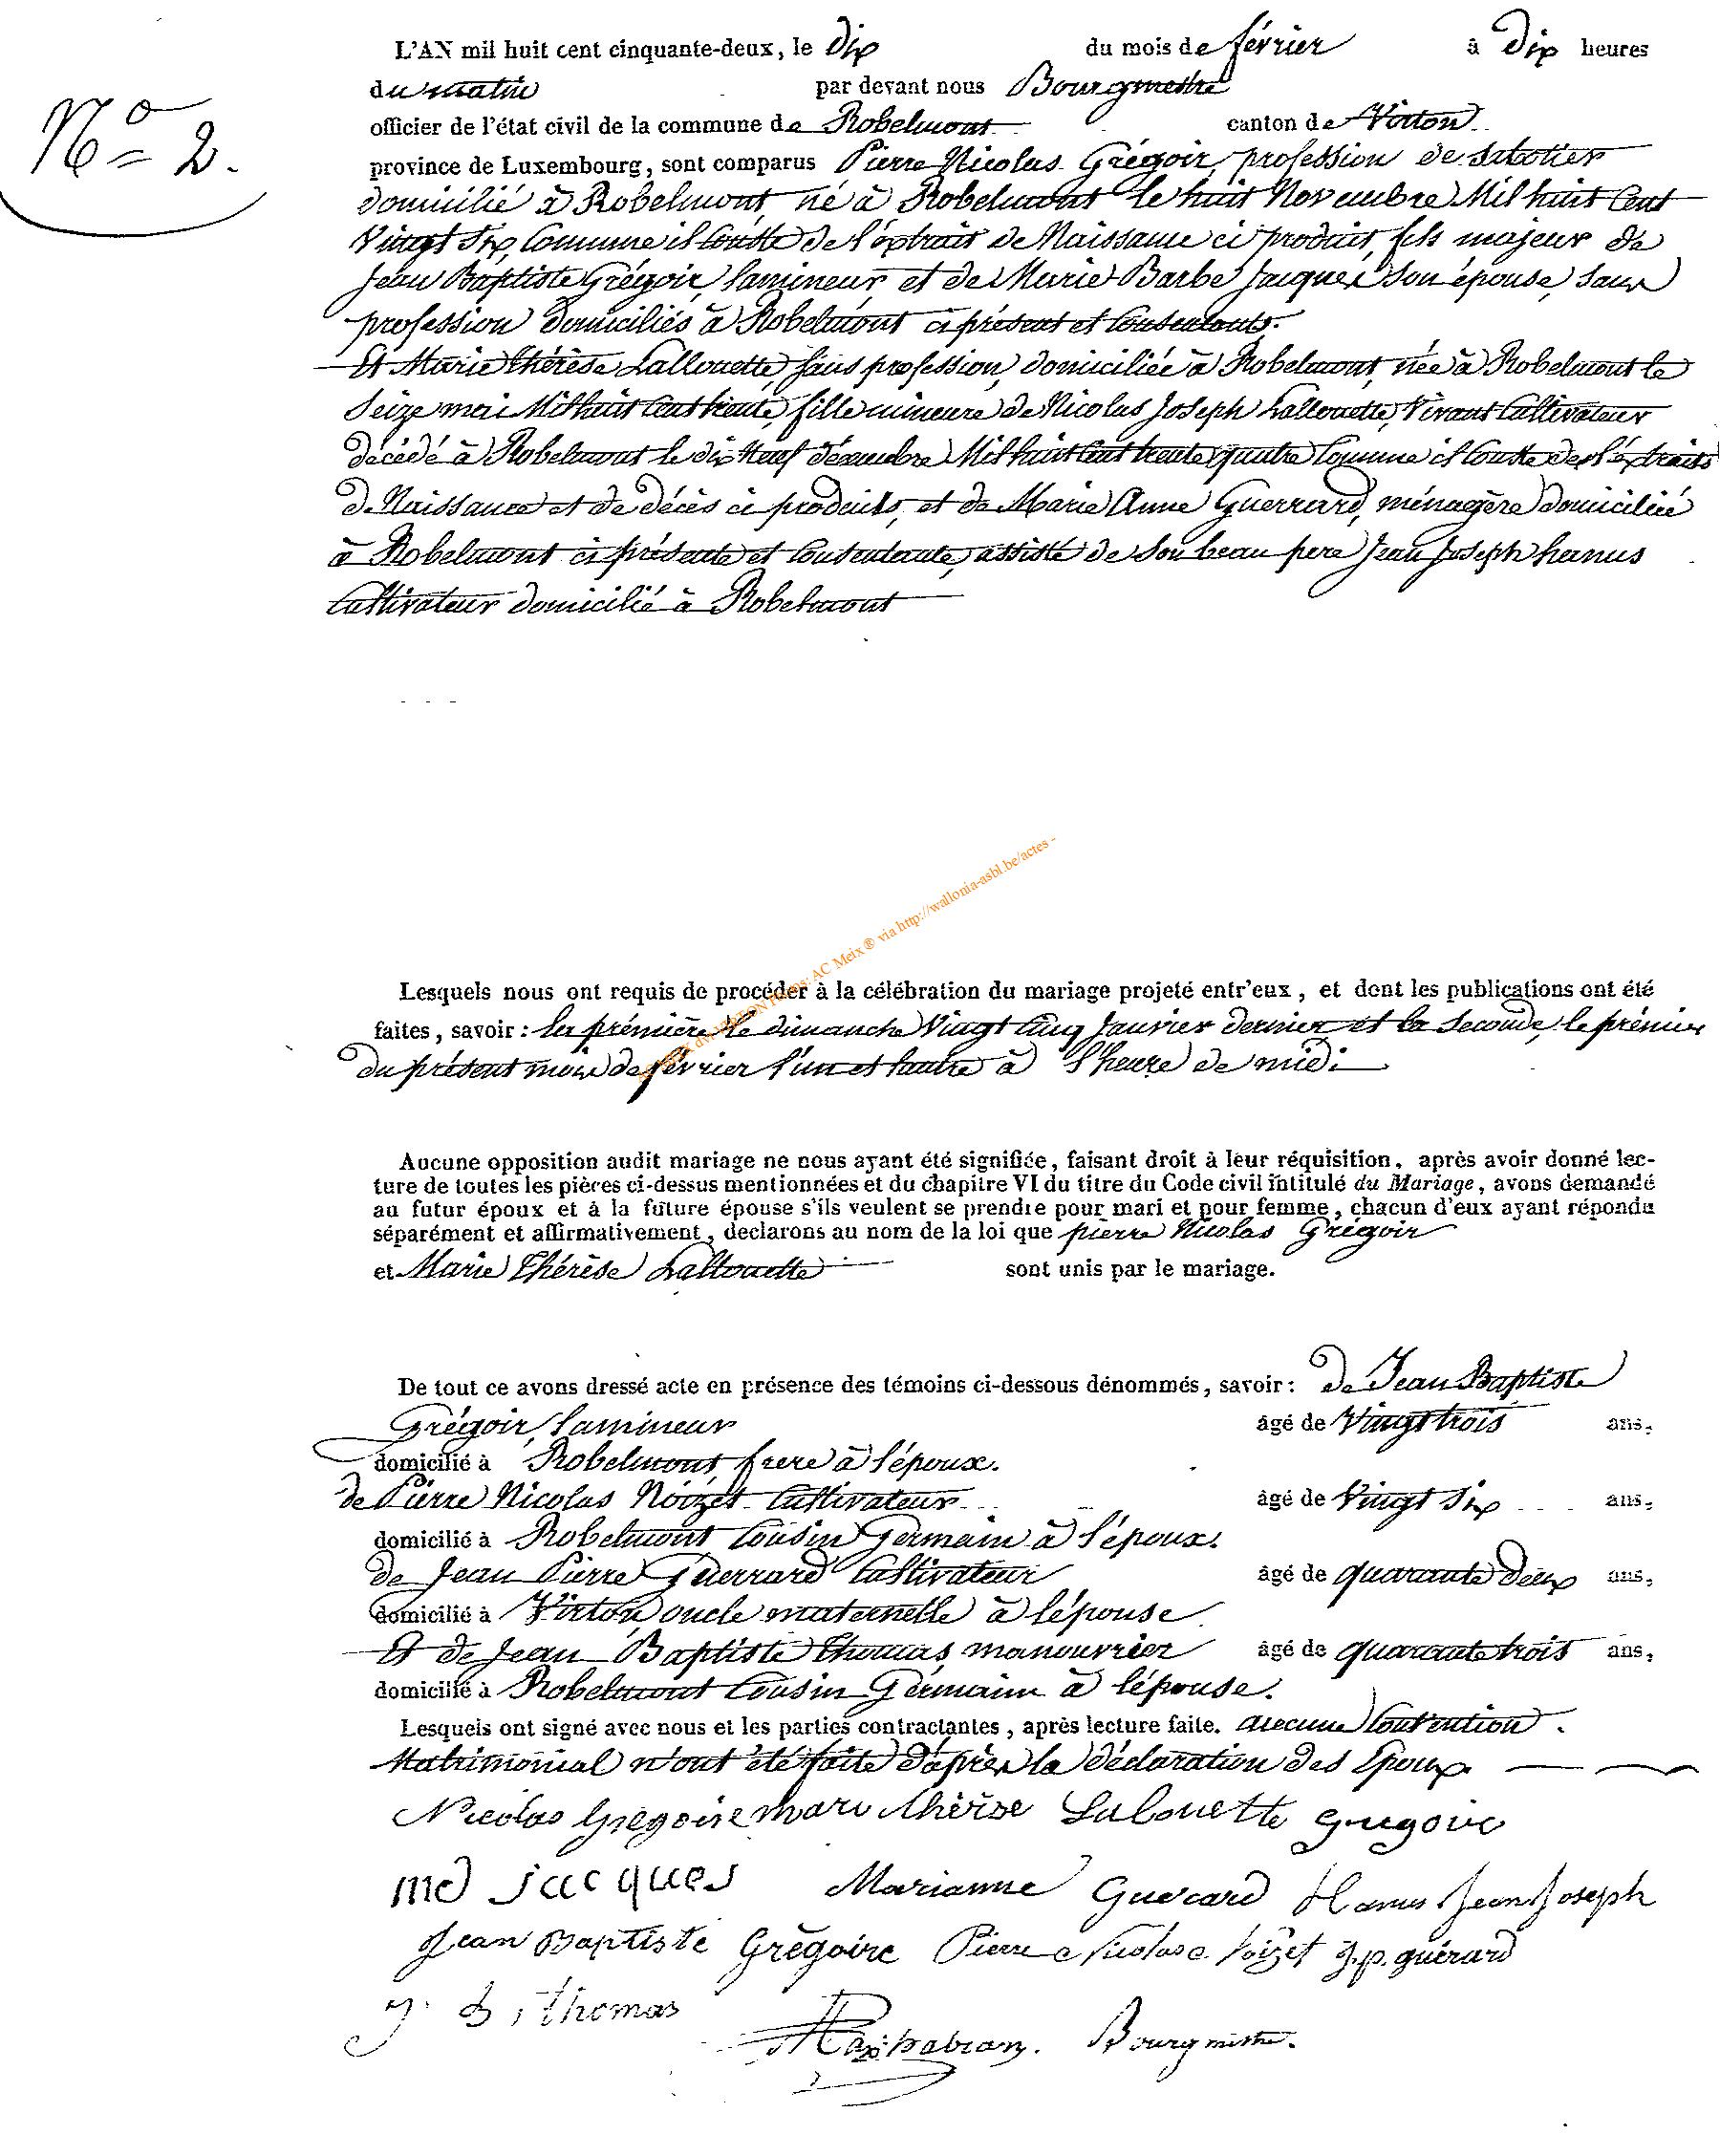 L'AN mil huit cent cinquante-deux, le dix du mois de février à dix heures
du matin par devant nous Bourgmestre
officier de l'état civil de la commune de Robelmont canton de Virton
N° 2.
province de Luxembourg, sont comparus Pierre Nicolas Grégoir, profession de sabotier
domicilié à Robelmont, né à Robelmont le huit Novembre Mil huit Cent
Vingt Six, Comme il Conste de l'éxtrait de Naissance ci produit, fils majeur de
Jean Baptiste Grégoir, lamineur, et de Marie Barbe Jacques son épouse, sans
profession domiciliés à Robelmont ci présent et Consentants.
Et Marie thérèse Lallouette, sans profession, domiciliée à Robelmont, née à Robelmont le
Seize mai Mil huit Cent trente, fille mineure de Nicolas Joseph Lallouette, Vivant Cultivateur
décédé à Robelmont le dix Neuf décembre Mil huit Cent trente quatre Comme il Conste des éxtraits
de Naissance et de décès ci produits, et de Marie Anne Guerrard, ménagère domiciliée
à Robelmont ci présente et Consentante, assisté de son beau pere Jean Joseph hanus
Cultivateur domicilié à Robelmont
AC Meix® via http://wallonia-asbl.be/actes -
Lesquels nous ont requis de procéder à la célébration du mariage projeté entr'eux, et dont les publications ont été
faites, savoir : la prémière le dimanche Vingt Cinq Janvier dernier et la Seconde, le prémier
du présent mois de février l'un et lautre à l'heure de midi
Aucune opposition audit mariage ne nous ayant été signifiée, faisant droit à leur réquisition, après avoir donné lec-
ture de toutes les pièces ci-dessus mentionnées et du chapitre VI du titre du Code civil intitulé du Mariage, avons demandé
au futur époux et à la future épouse s'ils veulent se prendre pour mari et pour femme, chacun d'eux ayant répondu
séparément et affirmativement, declarons au nom de la loi que pierre Nicolas Grégoir
et Marie thérèse Lallouette sont unis par le mariage.
De tout ce avons dressé acte en présence des témoins ci-dessous dénommés, savoir : de Jean Baptiste
Grégoir, lamineur âgé de Vingt trois ans,
domicilié à Robelmont, frere à l'époux.
de Pierre Nicolas Noizet Cultivateur âgé de Vingt Six ans,
domicilié à Robelmont Cousin Germain à l'époux.
de Jean Pierre Guerrard Cultivateur âgé de quarante deux ans,
domicilié à Virton, oncle maternelle à lépouse
Et de Jean Baptiste thomas, manouvrier âgé de quarante trois ans,
domicilié à Robelmont Cousin Germain à lépouse.
Lesquels ont signé avec nous et les parties contractantes, après lecture faite. aucune Convention
Matrimonial n'ont été faite d'après la déclaration des Epoux
Nicolas Grégoire mari thérèse Lalouette Gregoire
md jacques Marianne Guerard Hanus Jean Joseph
Jean Baptiste Grégoire Pierre Nicolas Noizet J.p. guérard
j. b. thomas Bourgmestre.